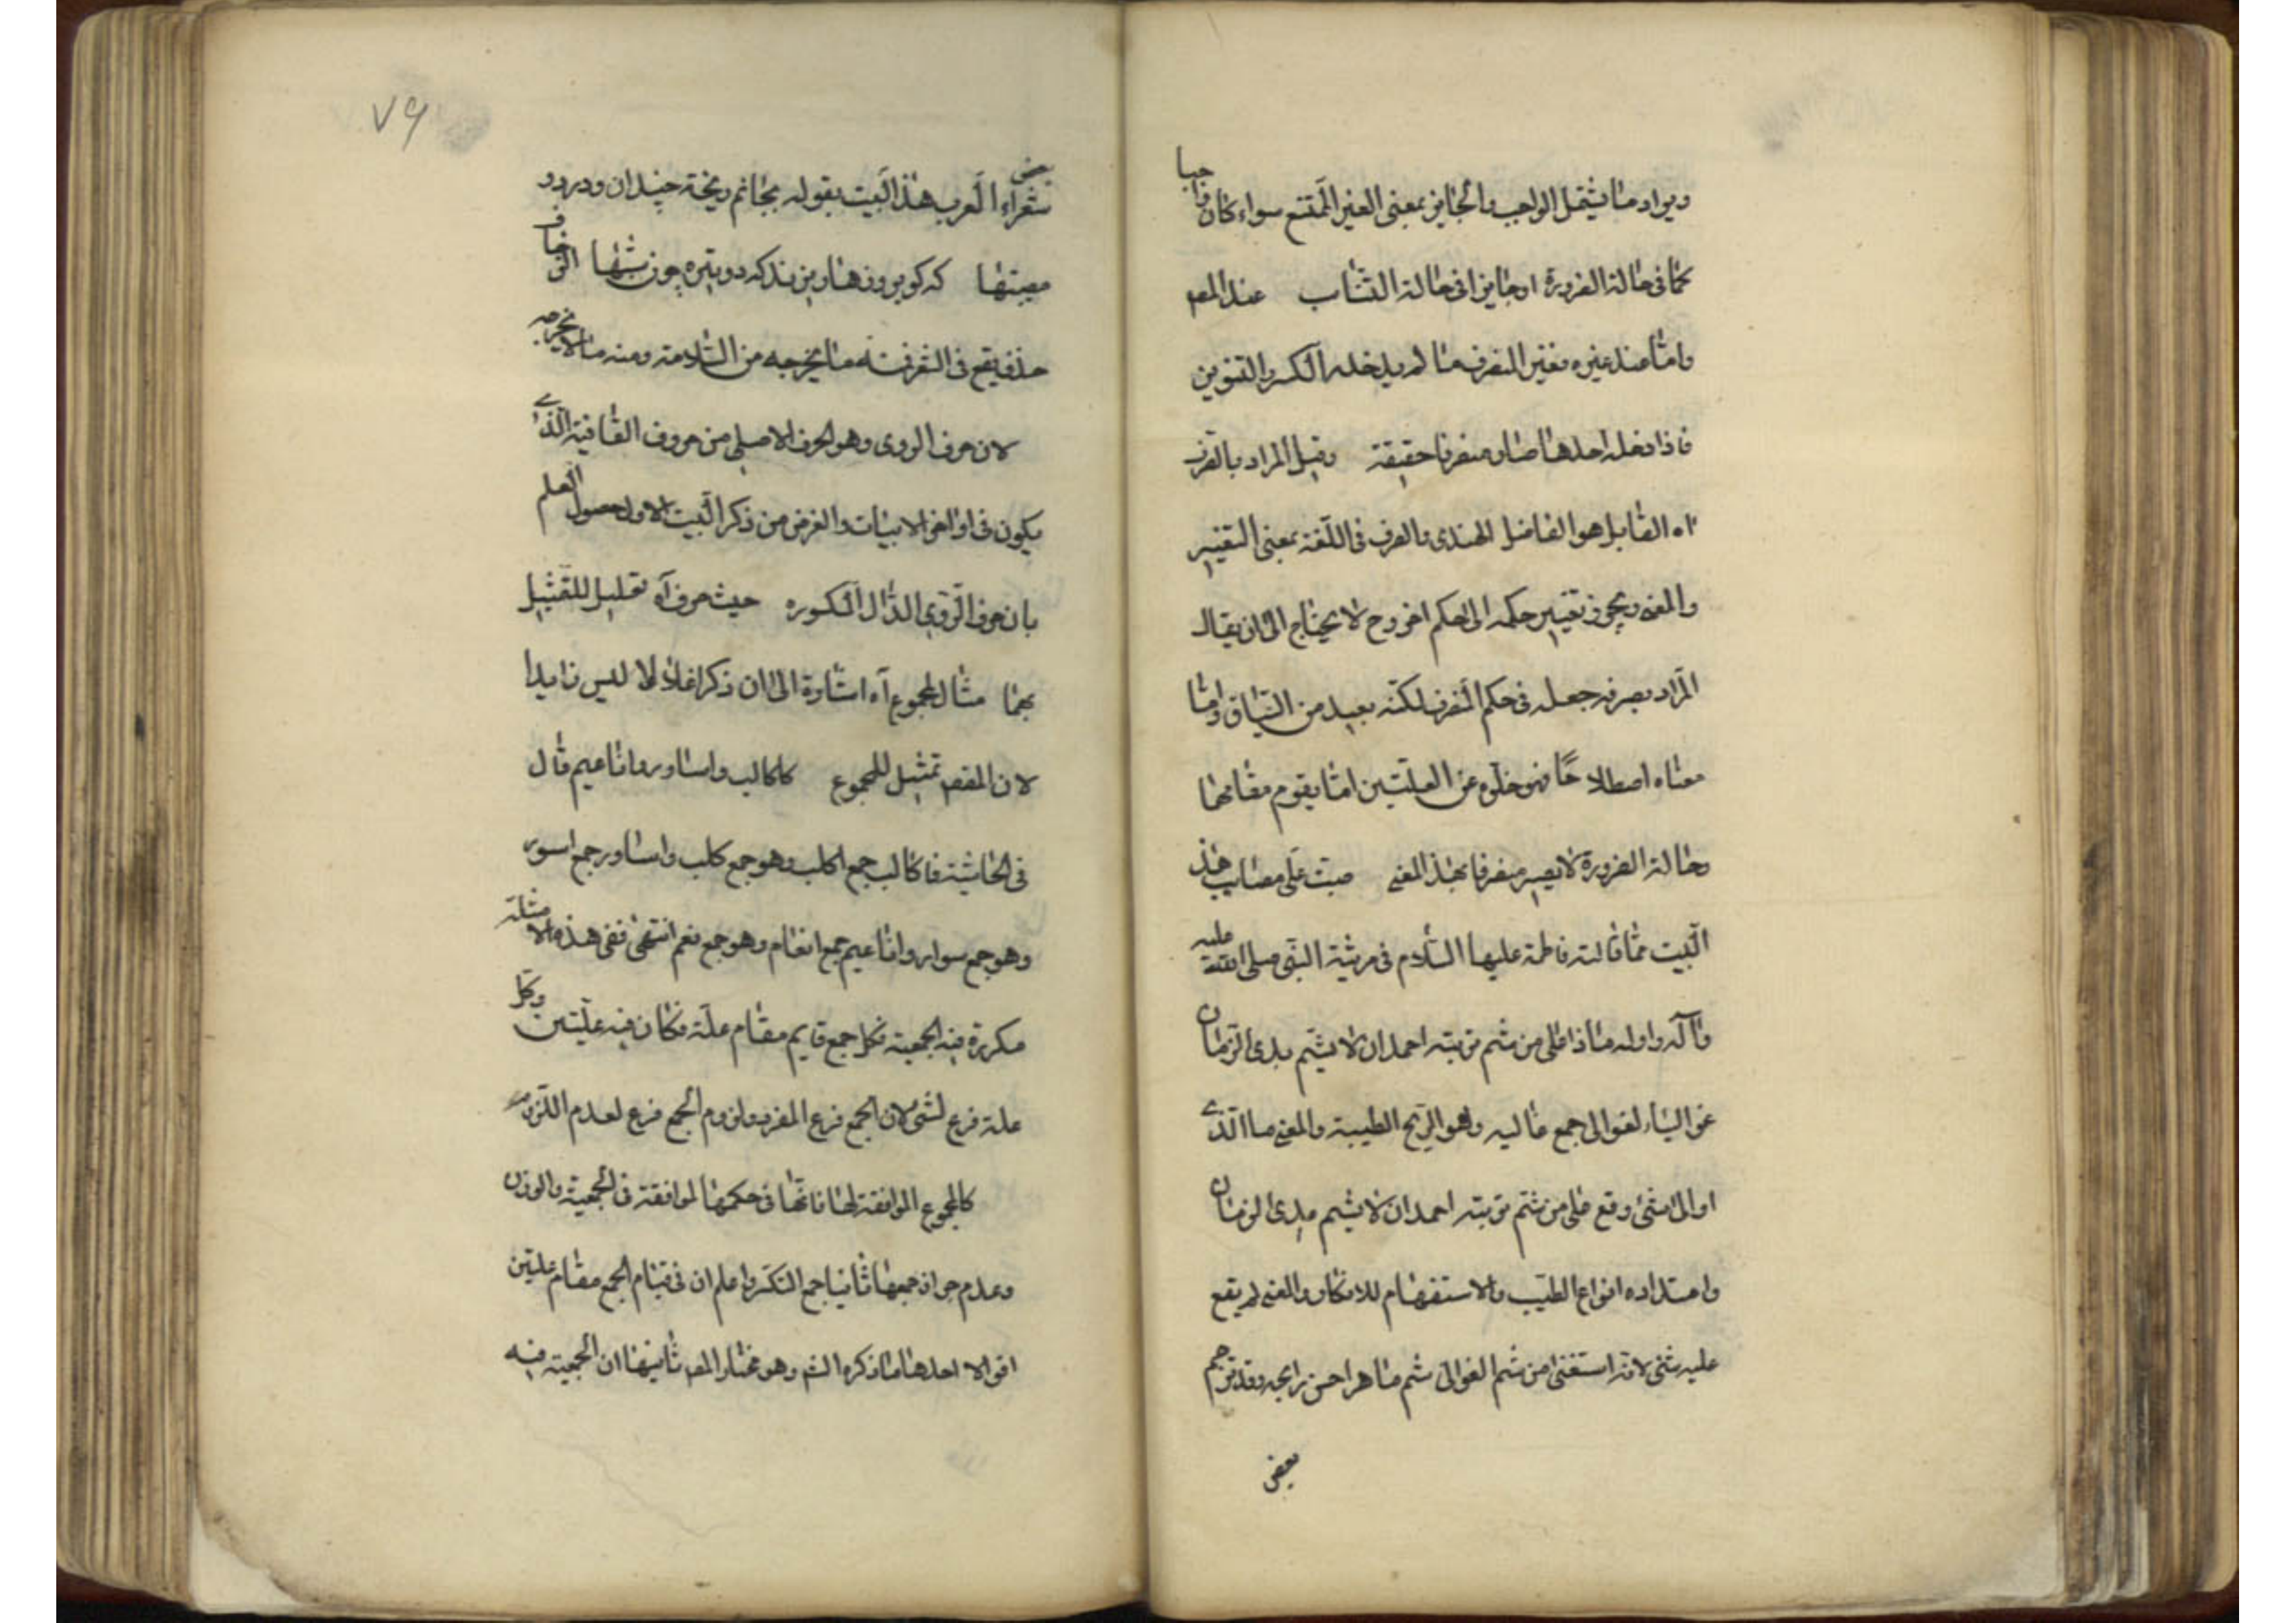 ويراد ما يشمل الواجب والجايز بمعنى الغير الممتنع سواء كان واجبا
كما فى حالة الضرورة او جايزا فى حالة التناسب عند المص
واما عند غيره فغير المنصرف ما لم يدخله الكسر والتنوين
فاذا دخله احدهما صار منصرفا حقيقة وقيل المراد بالصرف
اه القايل هو الفاضل الهندى والصرف فى اللغة بمعنى التغيير
والمعنى ويجوز تغيير حكمه الى حكم اخر وح لا يحتاج الى ان يقال
المراد بصرفه جعله فى حكم المنصرف لكنه بعيد من السياق واما
معناه اصطلاحا فهو خلوه عن العلتين اما يقوم مقامهما
وحالة الضرورة لا يصير منصرفا بهذا المعنى صبت على مصايب هذا
البيت مما قالته فاطمة عليها السلام فى مرثية النبى صلى الله عليه
واله واوله ماذا على من شم تربة احمد ان لا يشم مدى الزمان
غواليا الغوالى جمع غاليه وهو الريح الطيبة والمعنى ما الذى
او اى شئ وقع على من شم تربة احمد ان لا يشم مدى الزمان
وامتداده انواع الطيب والاستفهام للانكار والمعنى لم يقع
عليه شئ لانه استغنى من شم الغوالى بشم ما هو احسن رايحه وقد ترجم
بعض
٧٩
بعض
شعراء العرب هذا البيت بقوله بجانم ريخته چندان ودردو
مصيبتها كه كر بر روزها ريزند كه دو تيره چون شبها الزحاف
حذف يقع فى الشعر منه ما يخرجه من السلامة ومنه ما لا يخرجه
لان حرف الروى وهو الحرف الاصلى من حروف القافية الذى
يكون فى اواخر الابيات والغرض من ذكر البيت الاول حصول العلم
بان حرف الروى الدال المكسوره حيث حرف آه تعليل للتمثيل
بهما مثال للمجموع آه اشارة الى ان ذكر اغلالا ليس زايدا
لان المقص تمثيل للمجموع كاكالب واساور واناعيم قال
فى الحاشيته فاكالب جمع اكلب وهو جمع كلب واساور جمع اسوره
وهو جمع سوار واناعيم جمع انعام وهو جمع نعم انتهى ففى هذه الامثلة
مكررة فيه الجمعية فكل جمع قايم مقام علة فكان فيه علتين وكل
علة فرع لشئ لان الجمع فرع المفرد ولزوم الجمع فرع لعدم اللزوم
كالمجموع الموافقة لها فانها فى حكمها الموافقة فى الجمعية والوزن
وعدم جواز جمعها ثانيا جمع التكسر واعلم ان فى قيام الجمع مقام علتين
اقوالا احدها ما ذكره الش وهو مختار المص ثانيها ان الجمعية فيه